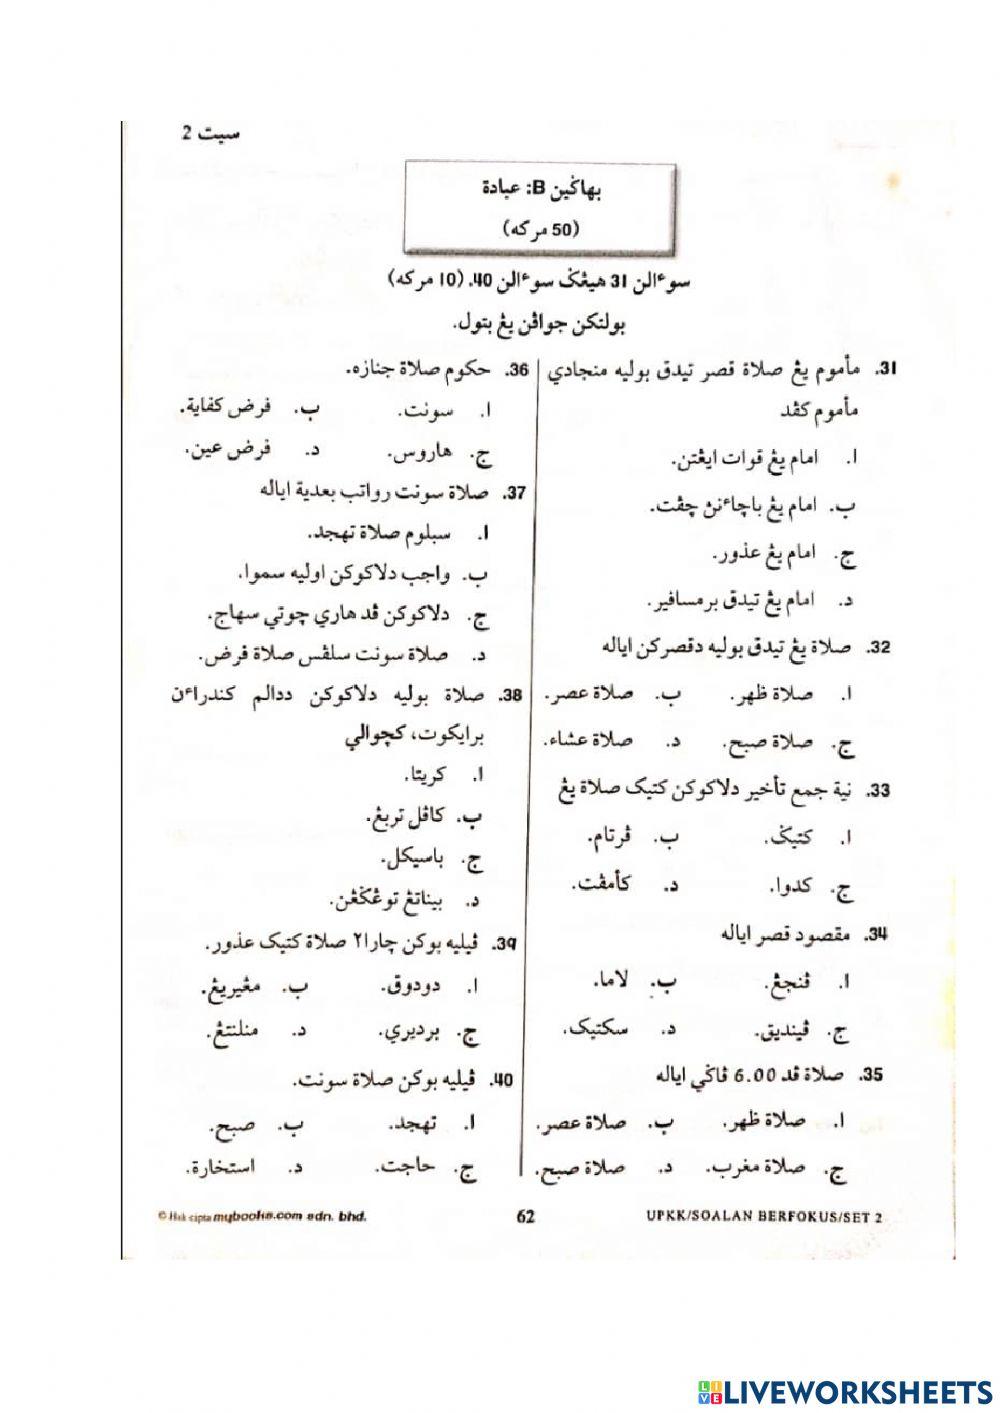 سيت 2
بهاݢين B: عبادة
(50 مركه)
سوءالن 31 هيڠݢ سوءالن 40. (10 مركه)
بولتكن جواڤن يڠ بتول.
31. مأموم يڠ صلاة قصر تيدق بوليه منجادي
مأموم كڤد
ا. امام يڠ قوات ايڠتن.
ب. امام يڠ باچاءنڽ چڤت.
ج. امام يڠ عذور.
د. امام يڠ تيدق برمسافير.
32. صلاة يڠ تيدق بوليه دقصركن اياله
ا. صلاة ظهر. ب. صلاة عصر.
ج. صلاة صبح. د. صلاة عشاء.
33. نية جمع تأخير دلاكوكن كتيک صلاة يڠ
ا. كتيݢ. ب. ڤرتام.
ج. كدوا. د. كأمڤت.
34. مقصود قصر اياله
ا. ڤنجڠ. ب. لاما.
ج. ڤينديق. د. سكتيک.
35. صلاة ڤد 6.00 ڤاݢي اياله
ا. صلاة ظهر. ب. صلاة عصر.
ج. صلاة مغرب. د. صلاة صبح.
36. حكوم صلاة جنازه.
ا. سونت. ب. فرض كفاية.
ج. هاروس. د. فرض عين.
37. صلاة سونت رواتب بعدية اياله
ا. سبلوم صلاة تهجد.
ب. واجب دلاكوكن اوليه سموا.
ج. دلاكوكن ڤد هاري چوتي سهاج.
د. صلاة سونت سلڤس صلاة فرض.
38. صلاة بوليه دلاكوكن ددالم كندراءن
برايكوت، كچوالي
ا. كريتا.
ب. كاڤل تربڠ.
ج. باسيكل.
د. بيناتڠ توڠݢڠن.
39. ڤيليه بوكن چارا٢ صلاة كتيک عذور.
ا. دودوق. ب. مڠيريڠ.
ج. برديري. د. منلنتڠ.
40. ڤيليه بوكن صلاة سونت.
ا. تهجد. ب. صبح.
ج. حاجت. د. استخارة.
© Hak cipta mybooks.com sdn. bhd.
62
UPKK/SOALAN BERFOKUS/SET 2
LIVEWORKSHEETS